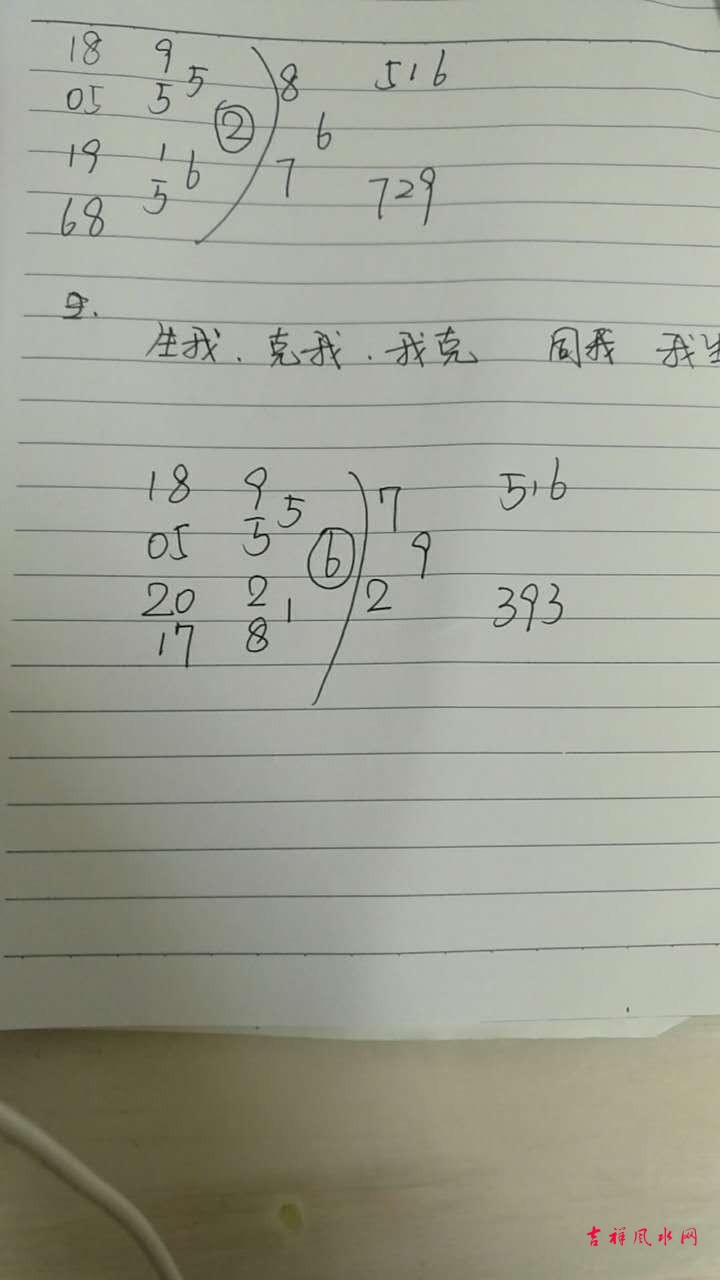 18 9 5 8 516
05 5
② 6
19 1 6 7 729
68 5
2.
生我.克我.我克 同我 我生
18 9 5 7 516
05 5 ⑥ 9
20 2 1 2 393
17 8
吉祥风水网